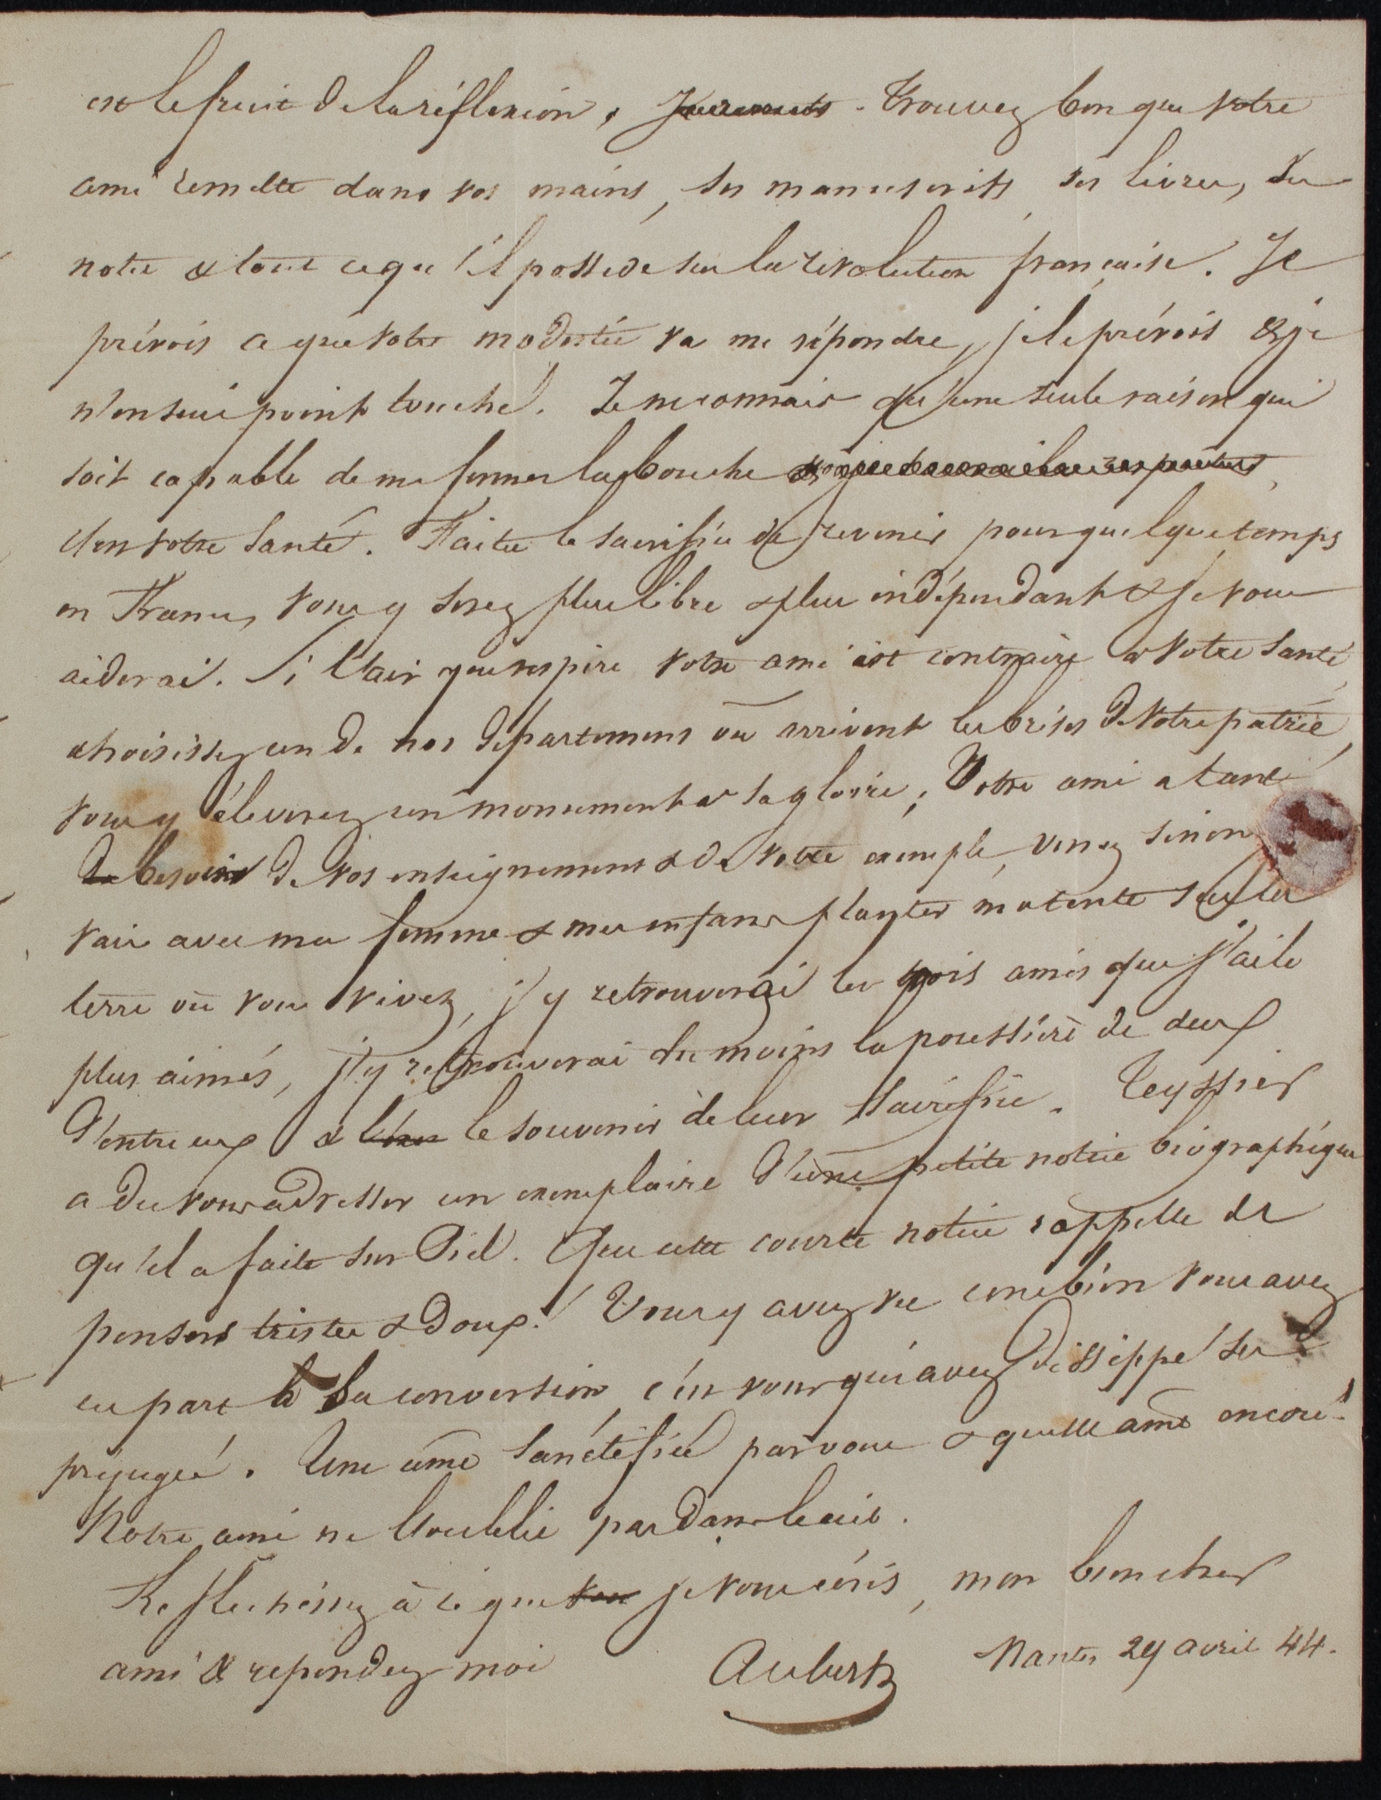 est le fruit de la réflexion, Trouvez bon que votre
ami remette dans vos mains, ses manuscrits, ses livres, ses
notes & tout ce qu'il possede sur la révolution française. Je
prévois ce que votre modestie va me répondre, je le prévois & je
n'en suis point touché. Je ne connais qu'une seule raison qui
soit capable de me fermer la bouche
c'en votre santé. Faites le sacrifice de revenir pour quelque temps
en France, vous y serez plus libre & plus indépendant & je vous
aiderai. Si l'air que respire votre ami est contraire à votre santé,
choisissez un de nos départemens où arrivent les brises de votre patrie,
vous y éleverez un monument à sa gloire; Votre ami a tant
de besoin de vos enseignemens & de votre exemple, venez sinon
vais avec ma femme & mes enfans planter ma tente sur la
terre où vous vivez, j'y retrouverai les trois amis que j'ai le
plus aimés, j'y retrouverai du moins la poussière de deux
d'entre eux & le souvenir de leur sacrifice. Teyssier
a du vous adresser un exemplaire d'une petite notice biographique
qu'il a faite sur Piel. Que cette courte notice rappelle de
pensers tristes & doux! Vous y avez vu combien vous avez
eu part à sa conversion, c'en vous qui avez dissippé ses
préjugés. Une âme sanctifiée par vous & quelle ame encore!
Notre ami ne l'oublie pas dans le ciel.
Reflechissez à ce que je vous écris, mon bien cher
ami & repondez-moi
Aubert Nantes 29 avril 44.